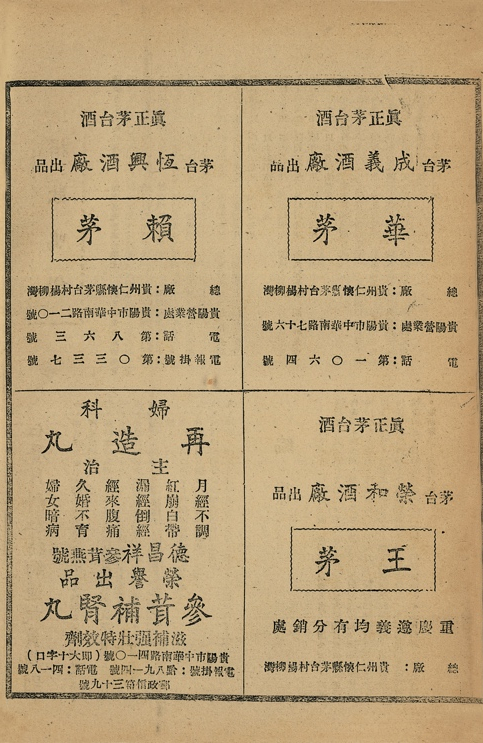 眞正茅台酒
茅台 成義酒廠 出品
華茅
總廠：貴州仁懷縣茅台村楊柳灣
貴陽營業處：貴陽市中華南路七十六號
電話：第一〇六四號
眞正茅台酒
茅台 恆興酒廠 出品
賴茅
總廠：貴州仁懷縣茅台村楊柳灣
貴陽營業處：貴陽市中華南路二一〇號
電話：第八六三號
電報掛號：第〇三三七號
眞正茅台酒
茅台 榮和酒廠 出品
王茅
重慶遵義均有分銷處
總廠：貴州仁懷縣茅台村楊柳灣
婦科
再造丸
主治
月經不調
紅崩白帶
漏經倒經
經來腹痛
久婚不育
婦女暗病
德昌祥參茸燕號
榮譽出品
參茸補腎丸
滋補强壯特效劑
貴陽市中華南路四一〇號（即大十字口）
電報掛號：八九一四號 電話：四一八號
郵政信箱三十九號